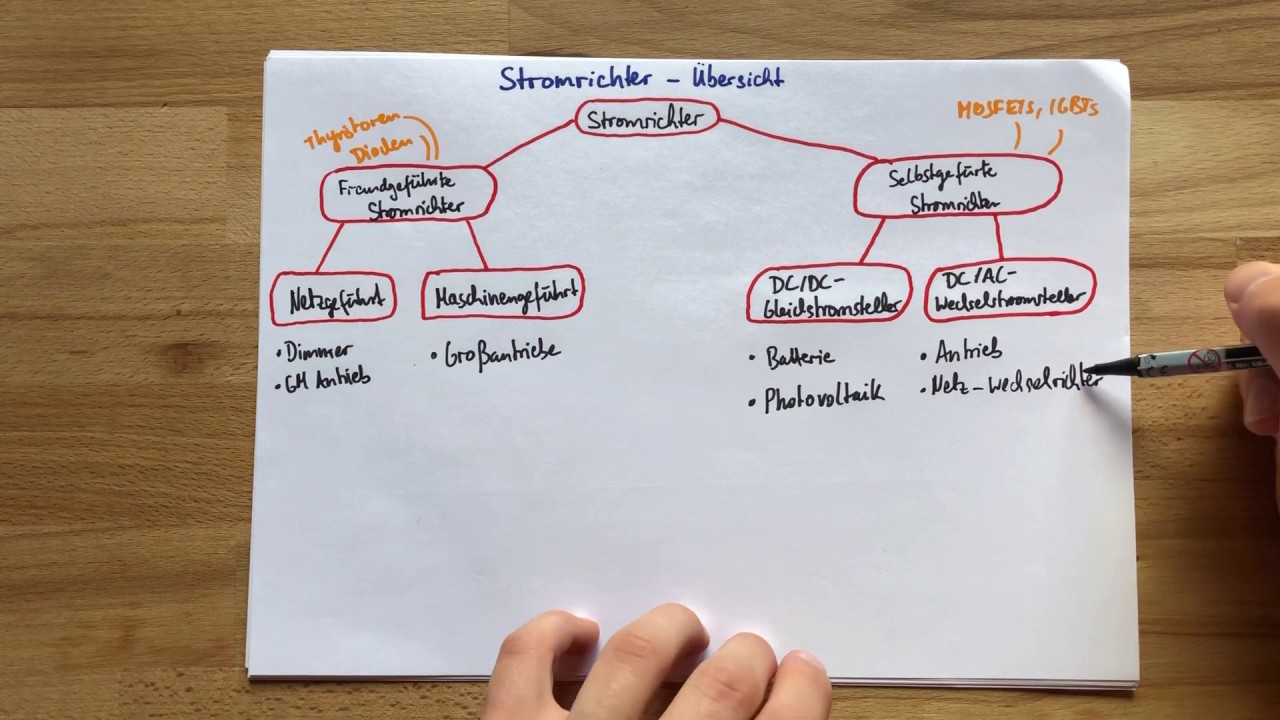 Stromrichter - Übersicht
Stromrichter
Thyristoren
Dioden
MOSFETs, IGBTs
Fremdgeführte
Stromrichter
Selbstgefürte
Stromrichter
Netzgeführt
Maschinengeführt
DC/DC-
Gleichstromsteller
DC/AC-
Wechselstromsteller
• Dimmer
• GM Antrieb
• Großantriebe
• Batterie
• Photovoltaik
• Antrieb
• Netz-Wechselrichter